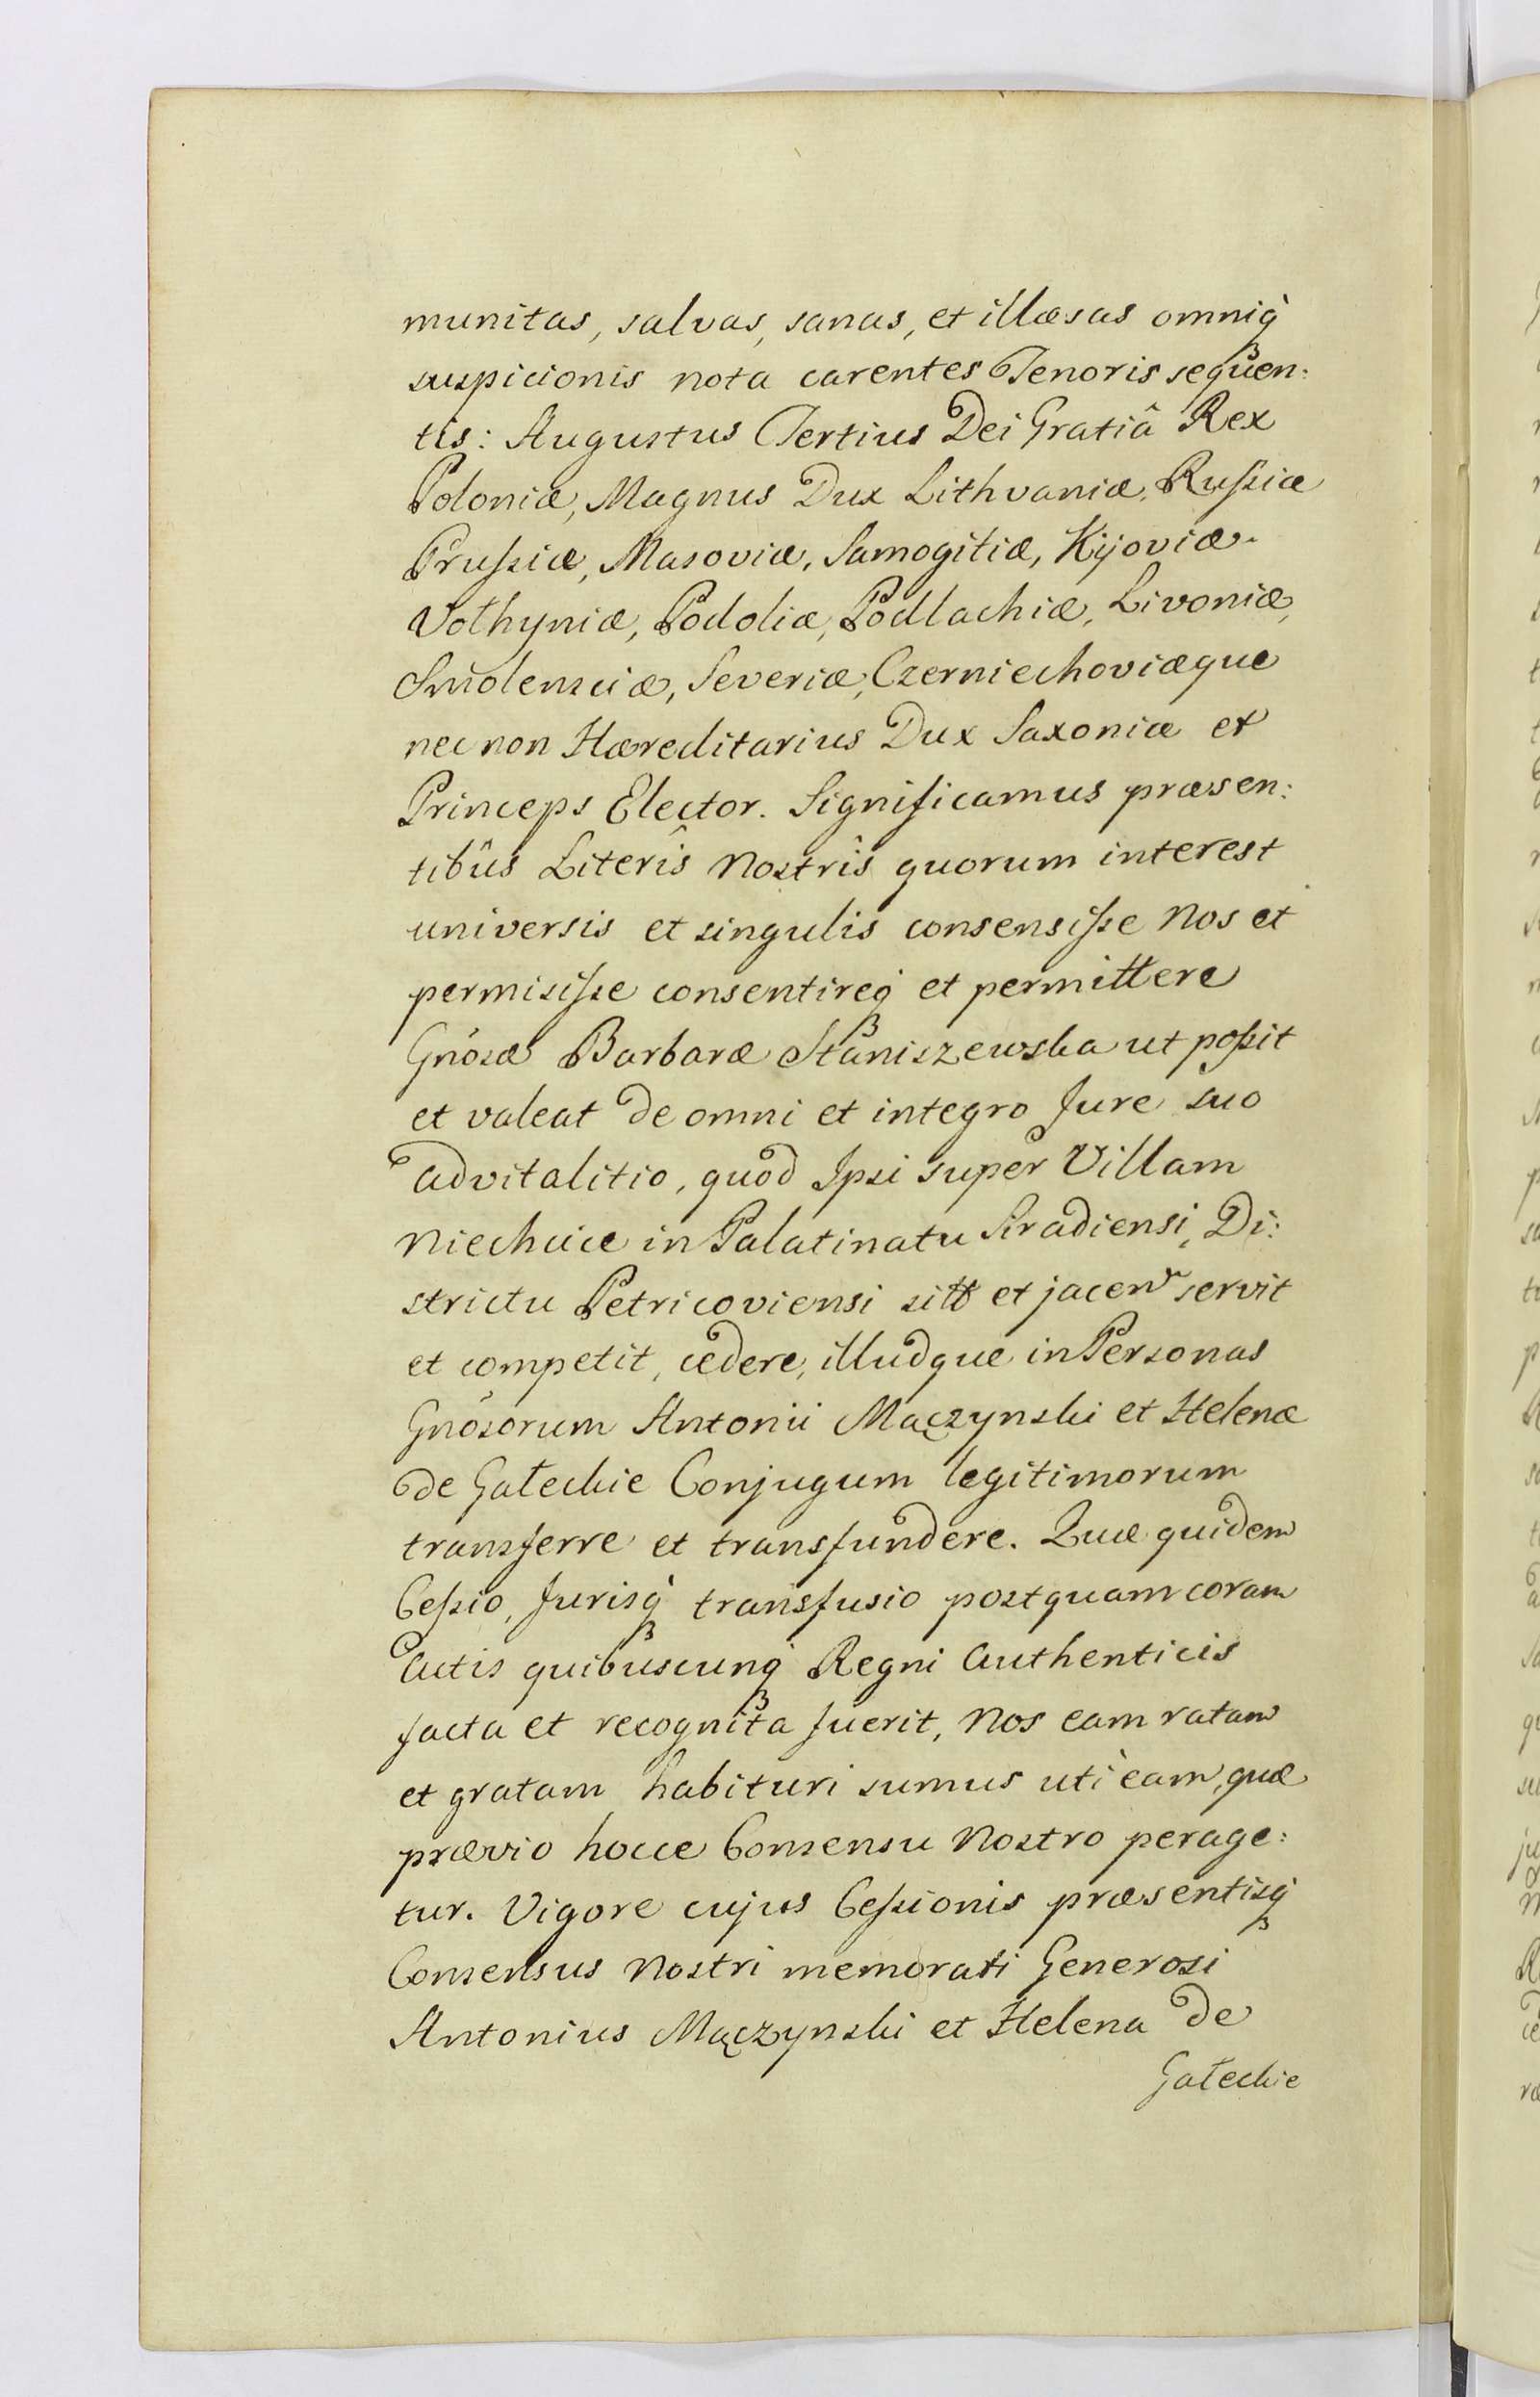 munitas, salvas, sanas, et illæsas omniq́ꝫ
suspicionis nota carentes Tenoris sequen:
tis: Augustus Tertius Dei Gratiâ Rex
Poloniæ, Magnus Dux Lithvaniæ, Rußiæ
Prußiæ, Masoviæ, Samogitiæ, Kijoviæ.
Volhyniæ, Podoliæ, Podlachiæ, Livoniæ,
Smolensciæ, Severiæ, Czerniechoviæque
nec non Hæreditarius Dux Saxoniæ et
Princeps Elector. Significamus præsen:
tibûs Literîs Nostrîs quorum interest
universis et singulis consensiße Nos et
permisiße consentireqꝫ et permittere
Gnôsæ Barbaræ Staniszewska ut poßit
et valeat de omni et integro Jure suo
advitalitio, quod Ipsi super Villam
Niechcice in Palatinatu Siradiensi, Di:
strictu Petricoviensi sitt et jacen servit
et competit, cedere, illudque in Personas
Gnôsorum Antonii Mączynski et Helenæ
de Gałeckie Conjugum legitimorum
transferre et transfundere. Quæ quidem
Ceßio, Jurisq́ꝫ transfusio postquam coram
Actis quibuscunqꝫ Regni Authenticis
facta et recognita fuerit, Nos eam ratam
et gratam habituri sumus utì eam, quæ
prævio hocce Consensu Nostro perage:
tur. Vigore cujus Ceßionis præsentisqꝫ
Consensus Nostri memorati Generosi
Antonius Mączynski et Helena de
Gałeckie